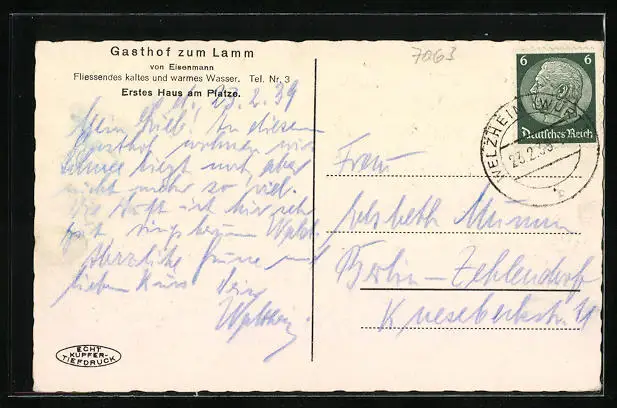 Gasthof zum Lamm
von Eisenmann
Fliessendes kaltes und warmes Wasser. Tel. Nr. 3
Erstes Haus am Platze.
d. 23.2.39
Mein! An diesem
Gasthof wohnen wir
Schnee liegt noch, aber
nicht mehr so viel.
Die Luft ist hier sehr
gut rings herum Wald.
Herzliche Grüsse und
lieben Kuss Dein
ECHT
KUPFER-
TIEFDRUCK
7063
6 6
Deutsches Reich
WELZHEIM (WÜRTT)
23.2.39
Frau
Elsbeth
Berlin-Zehlendorf